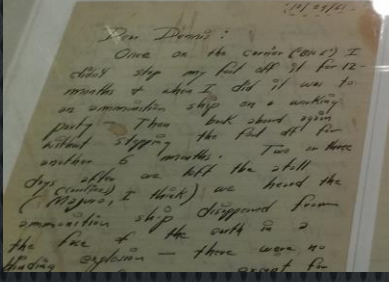 Dear Dennis:
Once on the carrier I
didn't step my foot off it for 12
months & when I did it was to
an ammunition ship on a working
party - Then back aboard again
without stepping the foot off for
another 6 months. Two or three
days after we left the atoll
(Majuro, I think) we heard the
ammunition ship disappeared from
the face of the earth in a
blinding explosion — there were no
except for